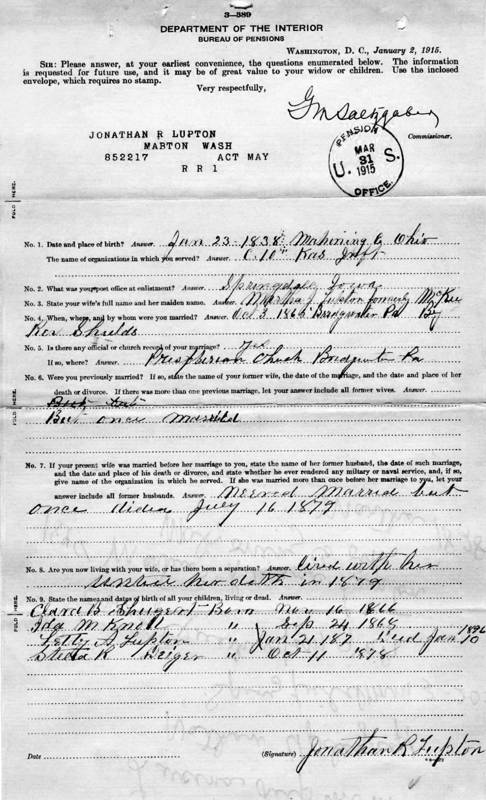 3—389
DEPARTMENT OF THE INTERIOR
BUREAU OF PENSIONS
WASHINGTON, D. C., January 2, 1915.
SIR: Please answer, at your earliest convenience, the questions enumerated below. The information
is requested for future use, and it may be of great value to your widow or children. Use the inclosed
envelope, which requires no stamp.
Very respectfully,
G M Saltzgaber
Commissioner.
JONATHAN R LUPTON
MABTON WASH
852217 ACT MAY
R R 1
PENSION
MAR
31
U. S.
1915
OFFICE.
No. 1. Date and place of birth? Answer. Jan 23-1838 Mahining Co Ohio
The name of organizations in which you served? Answer. C. 10th Kas Inft
No. 2. What was your post office at enlistment? Answer. Springdale Iowa
No. 3. State your wife's full name and her maiden name. Answer. Martha J Lupton formerly McKee
No. 4. When, where, and by whom were you married? Answer. Oct 3 1865 Bridgwater Pa By
Rev Shields
No. 5. Is there any official or church record of your marriage? Yes
If so, where? Answer. Church Bridgwater Pa
No. 6. Were you previously married? If so, state the name of your former wife, the date of the marriage, and the date and place of her
death or divorce. If there was more than one previous marriage, let your answer include all former wives. Answer.
But once Married
No. 7. If your present wife was married before her marriage to you, state the name of her former husband, the date of such marriage,
and the date and place of his death or divorce, and state whether he ever rendered any military or naval service, and, if so,
give name of the organization in which he served. If she was married more than once before her marriage to you, let your
answer include all former husbands. Answer. Married but
once July 16 1879
No. 8. Are you now living with your wife, or has there been a separation? Answer. lived with her
her death in 1879
No. 9. State the names and dates of birth of all your children, living or dead. Answer.
Clara B Shugert Born Nov 16 1866
Ida M Knoll " Sep 24 1868
Letty A Lupton " Jan 21 187 Died Jan 10 1896
K Geiger " Oct 11 1878
Date
(Signature) Jonathan R Lupton
FOLD HERE.
FOLD HERE.
FOLD HERE.